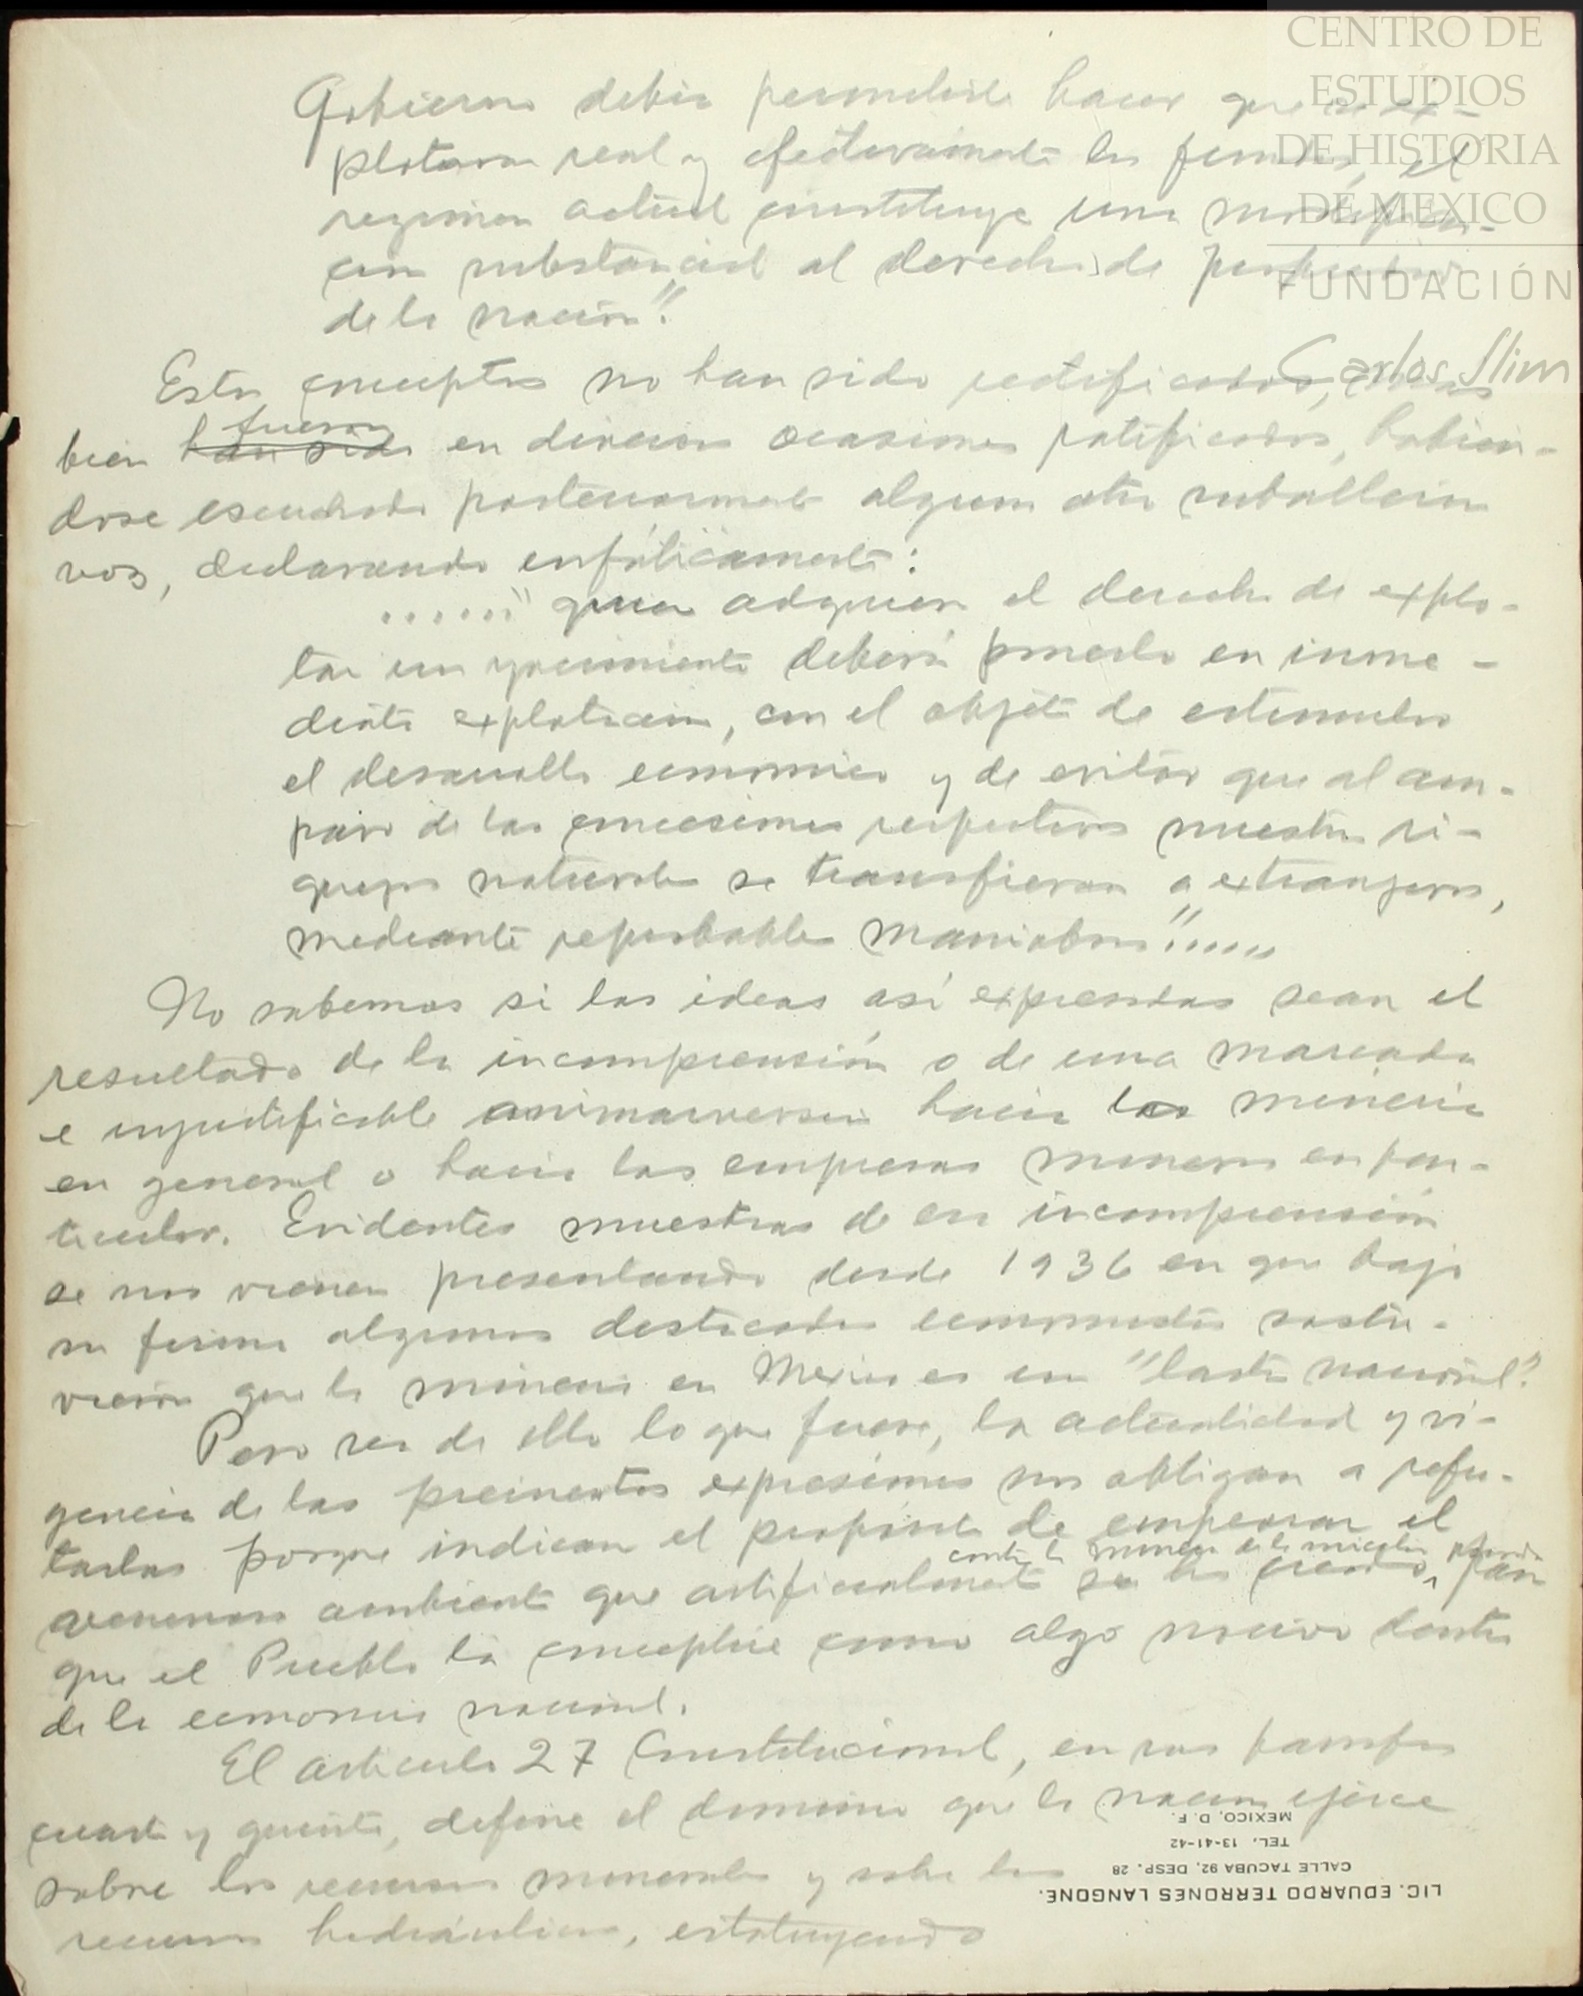 CENTRO DE
ESTUDIOS
DE HISTORIA
DE MEXICO
FUNDACIÓN
Carlos Slim
Gobierno debia hacer que se ex-
plotaran real y efectivamente los fundos, el
regimen actual constituye una modifica-
cion substancial al derecho de
de la nación".
Estos conceptos no han sido rectificados, mas
bien han sido fueron en diversas ocasiones ratificados, habien-
dose escuchado posteriormente alguna otra
voz, declarando enfáticamente:
......"quien adquiera el derecho de explo-
tar un yacimiento deberá ponerlo en inme-
diata explotacion, con el objeto de estimular
el desarrollo economico y de evitar que al am-
paro de las concesiones respectivas nuestras ri-
quezas naturales se transfieran a extranjeros,
mediante reprobables maniobras".....
No sabemos si las ideas así expresadas sean el
resultado de la incomprensión o de una marcada
e injustificable animadversion hacia la mineria
en general o hacia las empresas mineras en par-
ticular. Evidentes muestras de esa incomprensión
se nos vienen presentando desde 1936 en que bajo
su firma algunos destacados economistas sostu-
vieron que la mineria en Mexico es un "lastre nacional".
Pero sea de ello lo que fuere, la actualidad y vi-
gencia de las preinsertas expresiones nos obligan a refu-
tarlas porque indican el proposito de empeorar el
venenoso ambiente que artificialmente se ha creado contra la mineria para
que el Pueblo la conceptúe como algo nocivo dentro
de la economia nacional.
El articulo 27 Constitucional, en sus parrafos
cuarto y quinto, define el dominio que la nacion ejerce
sobre los recursos minerales y sobre los
recursos hidráulicos, estatuyendo
LIC. EDUARDO TERRONES LANGONE.
CALLE TACUBA 92, DESP. 28
TEL. 13-41-42
MEXICO, D. F.